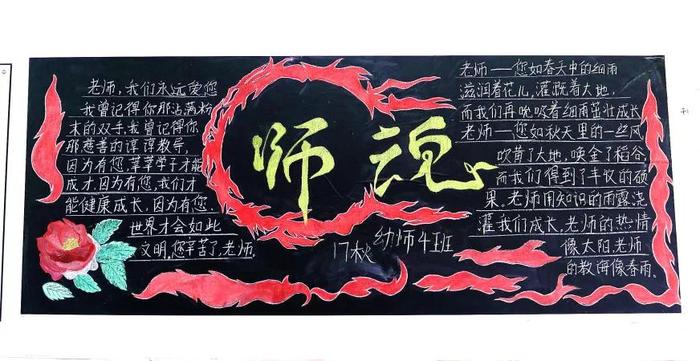 老师,我们永远爱您
我曾记得你那沾满粉
末的双手,我曾记得你
那慈善的谆谆教导,
因为有您,莘莘学子才能
成才,因为有您,我们才
能健康成长,因为有您,
世界才会如此
文明,您辛苦了,老师,
师说
17秋幼师4班
老师——您如春天中的细雨
滋润着花儿,灌溉着大地,
而我们再吮吸着细雨茁壮成长
老师——您如秋天里的一丝风
吹黄了大地,唤金了稻谷,
而我们得到了丰收的硕
果,老师用知识的雨露浇
灌我们成长,老师的热情
像太阳,老师
的教诲像春雨.